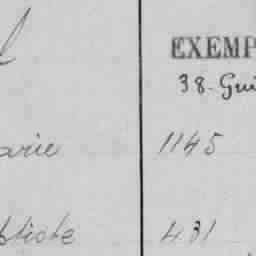 EXEMP
38-Gui
arie 1145
ptiste 431